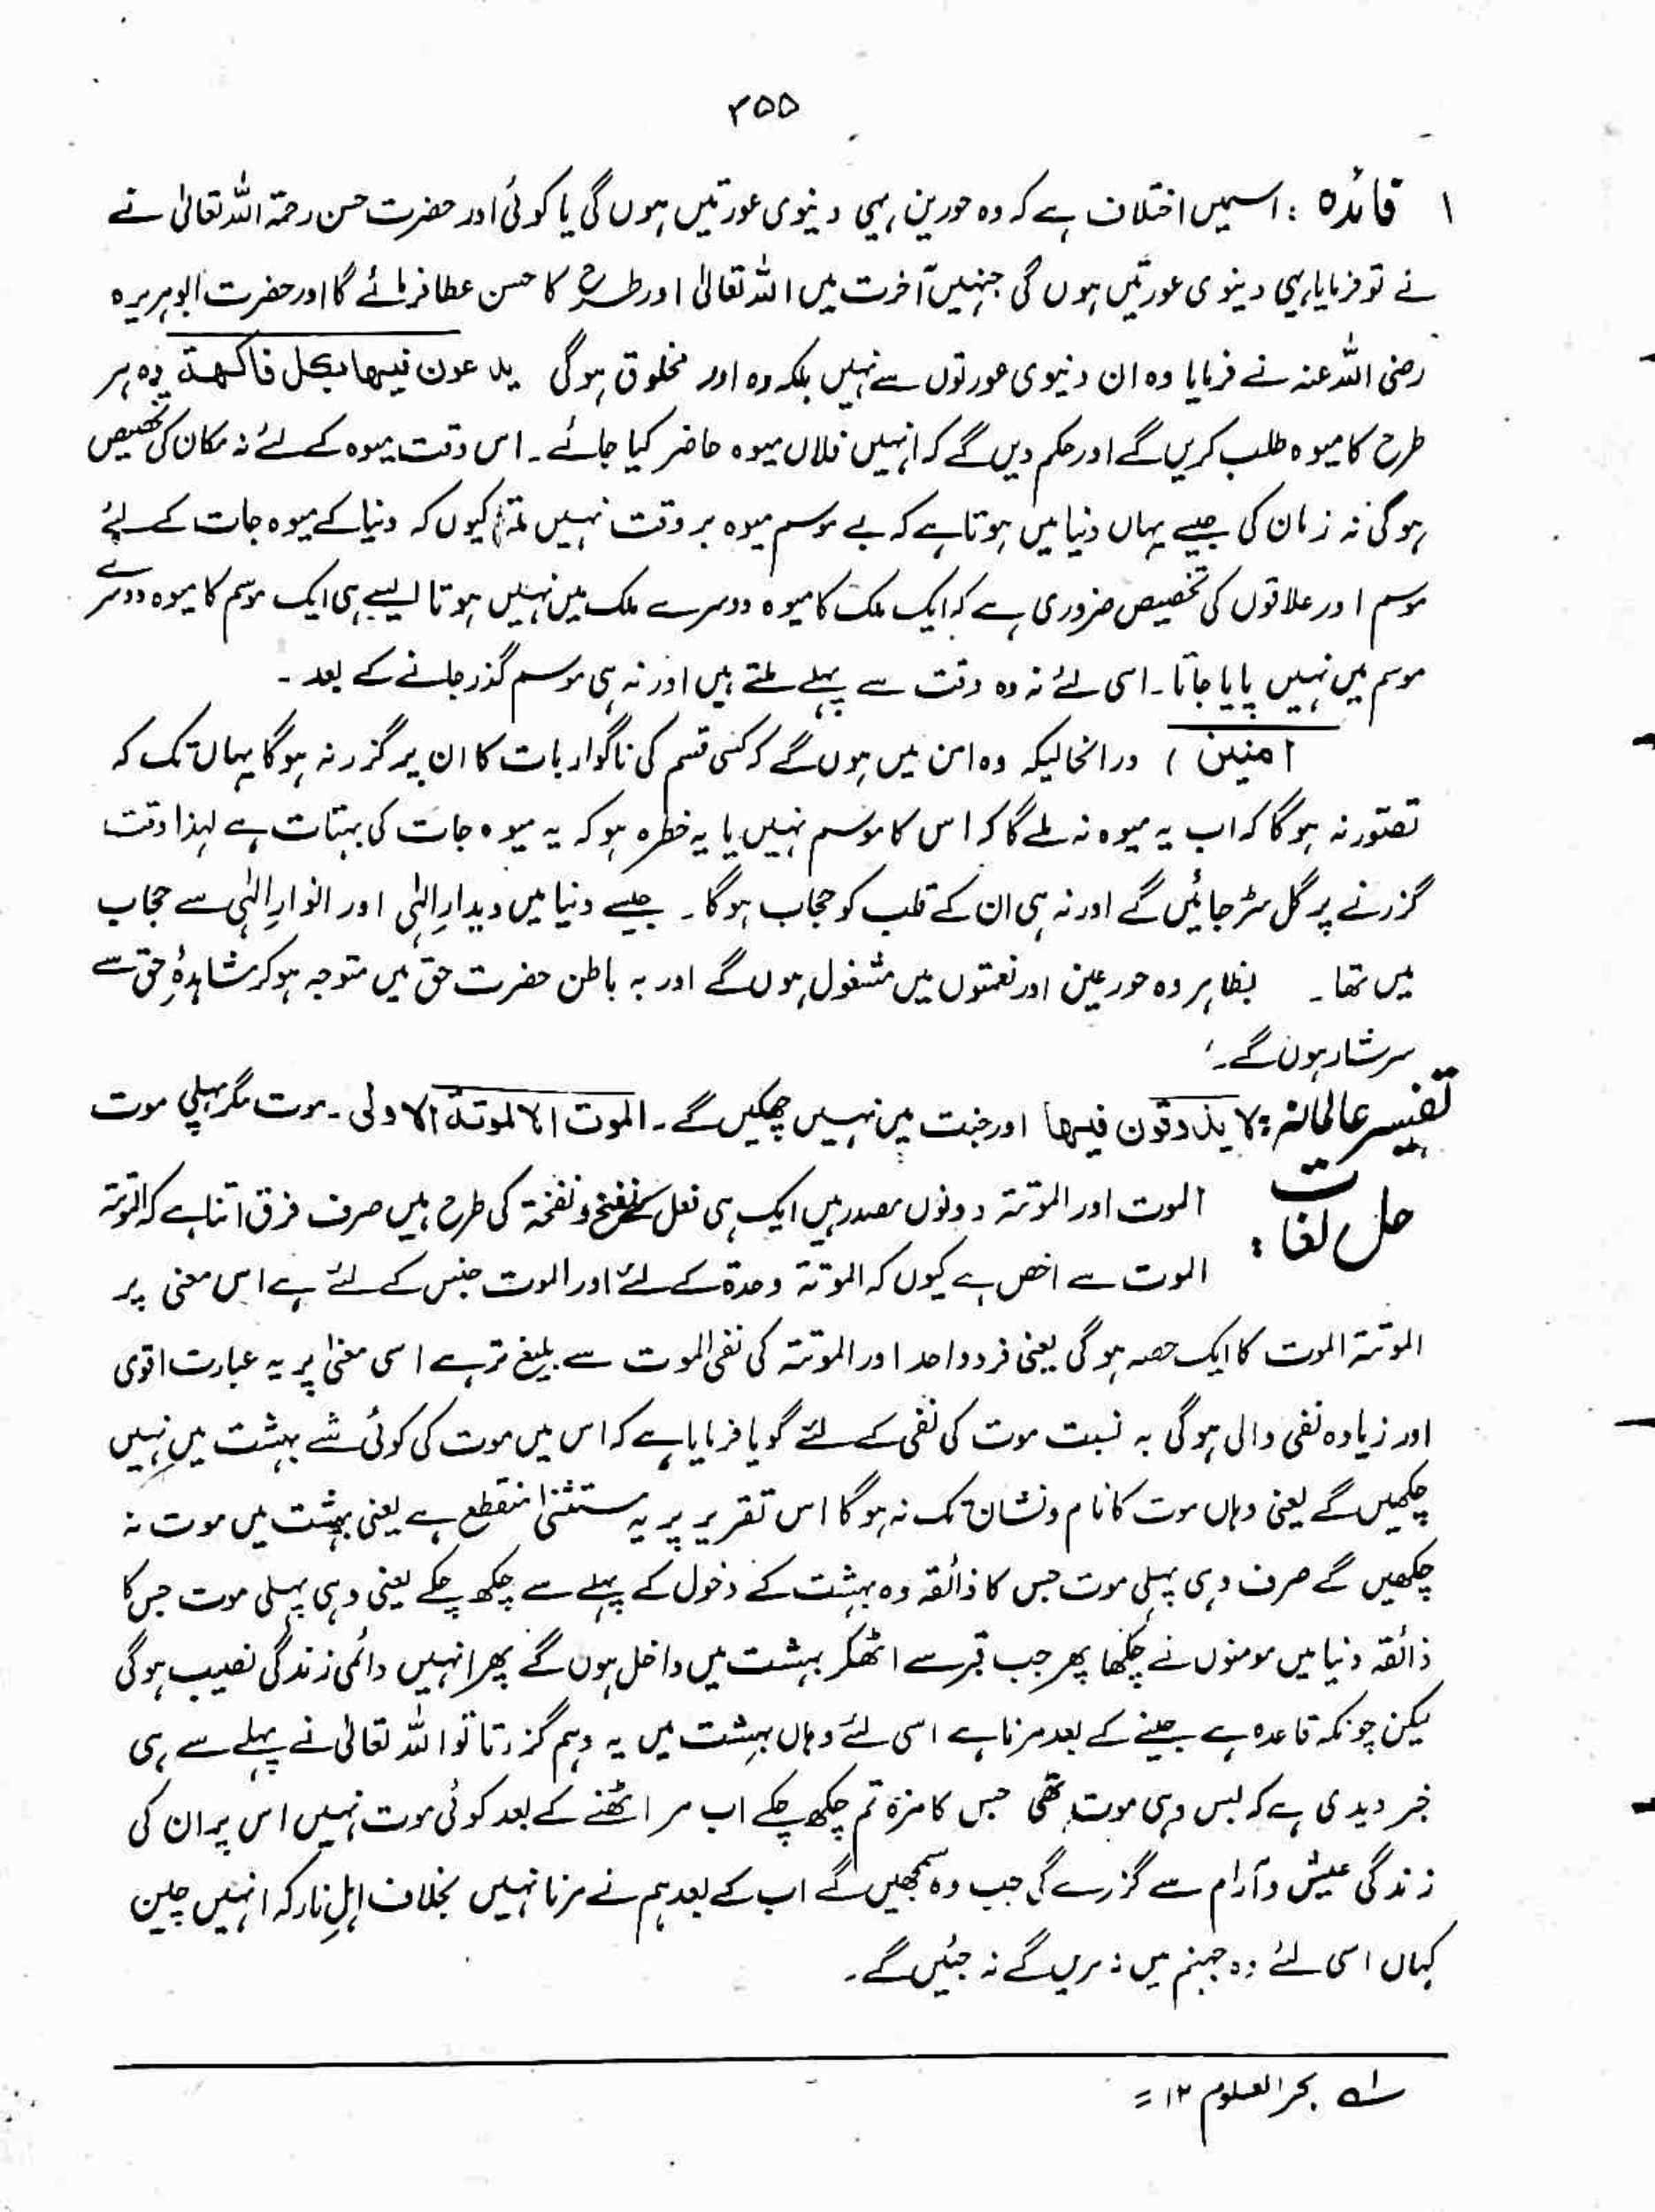 ۳۵۵
۱ فائدہ : اسمیں اختلاف ہے کہ وہ حورین یہی دینوی عورتیں ہوں گی یا کوئی اور حضرت حسن رحمۃ اللہ تعالیٰ نے
نے تو فرمایا یہی دینوی عورتیں ہوں گی جنہیں آخرت میں اللہ تعالیٰ اور طرح کا حسن عطا فرمائے گا اور حضرت ابوہریرہ
رضی اللہ عنہ نے فرمایا وہ ان دنیوی عورتوں سے نہیں بلکہ وہ اور مخلوق ہوگی یدعون فیہا بکل فاکہۃ وہ ہر
طرح کا میوہ طلب کریں گے اور حکم دیں گے کہ انہیں فلاں میوہ حاضر کیا جائے ۔ اس وقت میوہ کے لئے نہ مکان کی تخصیص
ہوگی نہ زمان کی جیسے یہاں دنیا میں ہوتا ہے کہ بے موسم میوہ بر وقت نہیں ملتا کیوں کہ دنیا کے میوہ جات کے لئے
موسم اور علاقوں کی تخصیص ضروری ہے کہ ایک ملک کا میوہ دوسرے ملک میں نہیں ہوتا ایسے ہی ایک موسم کا میوہ دوسرے
موسم میں نہیں پایا جاتا ۔ اسی لئے نہ وہ وقت سے پہلے ملتے ہیں اور نہ ہی موسم گذر جانے کے بعد ۔
اٰمنین ) درانحالیکہ وہ امن میں ہوں گے کہ کسی قسم کی ناگوار بات کا ان پر گزر نہ ہوگا یہاں تک کہ
تصّور نہ ہوگا کہ اب یہ میوہ نہ ملے گا کہ اس کا موسم نہیں یا یہ خطرہ ہو کہ یہ میوہ جات کی بہتات ہے لہذا وقت
گزرنے پر گل سڑ جائیں گے اور نہ ہی ان کے قلب کو حجاب ہوگا ۔ جیسے دنیا میں دیدارِ الٰہی اور انوارِ الٰہی سے حجاب
میں تھا ۔ بظاہر وہ حور عین اور نعمتوں میں مشغول ہوں گے اور بہ باطن حضرت حق میں متوجہ ہو کر مشاہدۂ حق سے
سرشار ہوں گے ۔
تفسیر عالمانہ : لا یذوقون فیہا اور جنت میں نہیں چکھیں گے ۔ الموت الا الموتۃ الاولی ۔ موت مگر پہلی موت
حل لغات : الموت اور الموتۃ دونوں مصدر ہیں ایک ہی فعل کے نفخ و نفخۃ کی طرح ہیں صرف فرق اتنا ہے کہ الموتۃ
الموت سے اخص ہے کیوں کہ الموتۃ وحدۃ کے لئے اور الموت جنس کے لئے ہے اس معنی پر
الموتۃ الموت کا ایک حصہ ہوگی یعنی فرد واحد اور الموتۃ کی نفی الموت سے بلیغ تر ہے اسی معنیٰ پر یہ عبارت اقوی
اور زیادہ نفی والی ہوگی بہ نسبت موت کی نفی کے لئے گویا فرمایا ہے کہ اس میں موت کی کوئی شے بہشت میں نہیں
چکھیں گے یعنی وہاں موت کا نام و نشان تک نہ ہوگا اس تقریر پر یہ مستثنیٰ منقطع ہے یعنی بہشت میں موت نہ
چکھیں گے صرف وہی پہلی موت جس کا ذائقہ وہ بہشت کے دخول کے پہلے سے چکھ چکے یعنی وہی پہلی موت جس کا
ذائقہ دنیا میں مومنوں نے چکھا پھر جب قبر سے اٹھکر بہشت میں داخل ہوں گے پھر انہیں دائمی زندگی نصیب ہوگی
لیکن چونکہ قاعدہ ہے جینے کے بعد مرنا ہے اسی لئے وہاں بہشت میں یہ وہم گزرتا تو اللہ تعالیٰ نے پہلے سے ہی
خبر دیدی ہے کہ بس وہی موت تھی جس کا مزہ تم چکھ چکے اب مر اٹھنے کے بعد کوئی موت نہیں اس پر ان کی
زندگی عیش و آرام سے گزرے گی جب وہ سمجھیں گے اب کے بعد ہم نے مرنا نہیں بخلاف اہلِ نار کہ انہیں چین
کہاں اسی لئے وہ جہنم میں نہ مریں گے نہ جئیں گے ۔
لہ بحر العلوم ۱۲ =